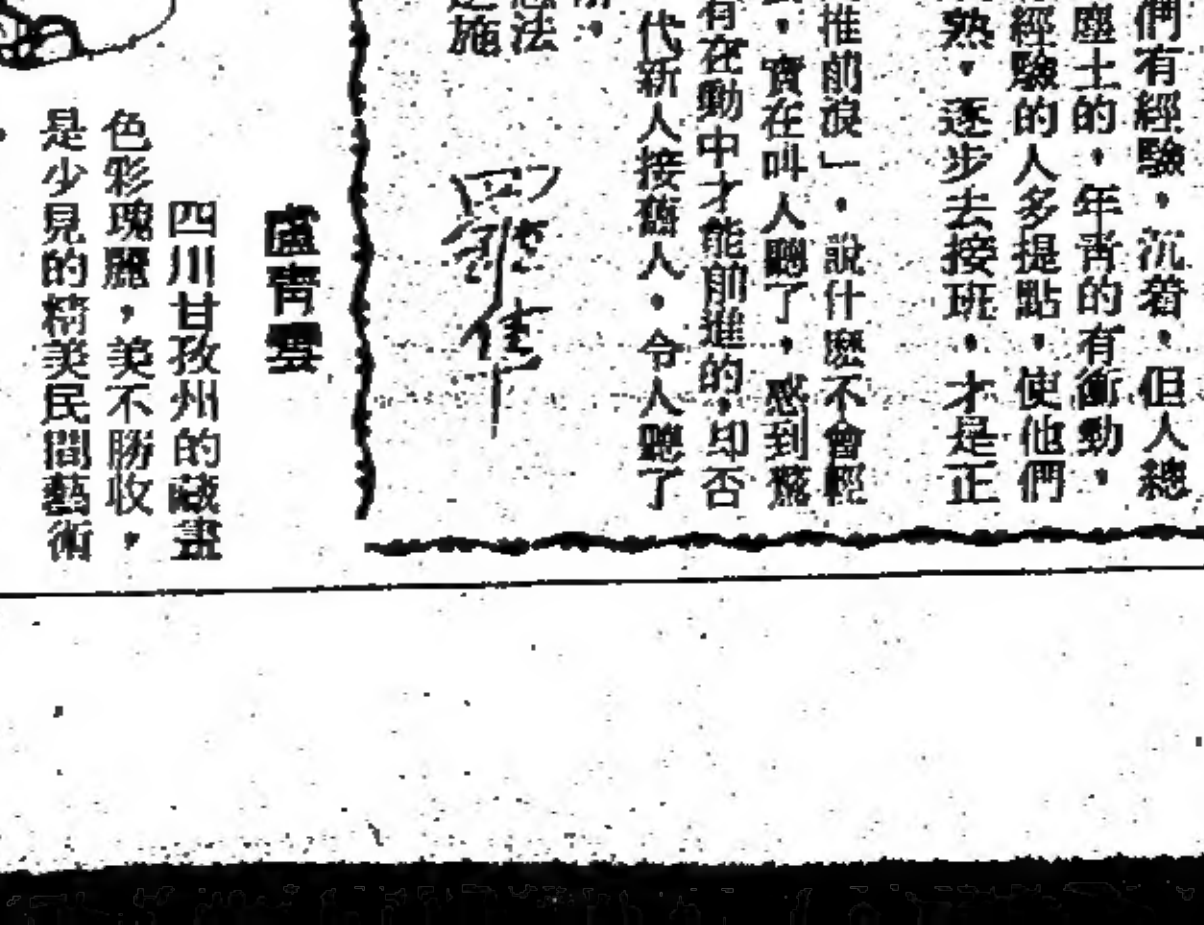 們有經驗，沉着，但人總
塵土的，年青的有衝動，
經驗的人多提點，使他們
熟，逐步去接班，才是正
推前浪」，說什麼不會輕
，實在叫人聽了，感到驚
有在動中才能前進的，却否
代新人接舊人，令人聽了
想法
施
羅佳
盧青雲
四川甘孜州的藏畫
色彩瑰麗，美不勝收，
是少見的精美民間藝術